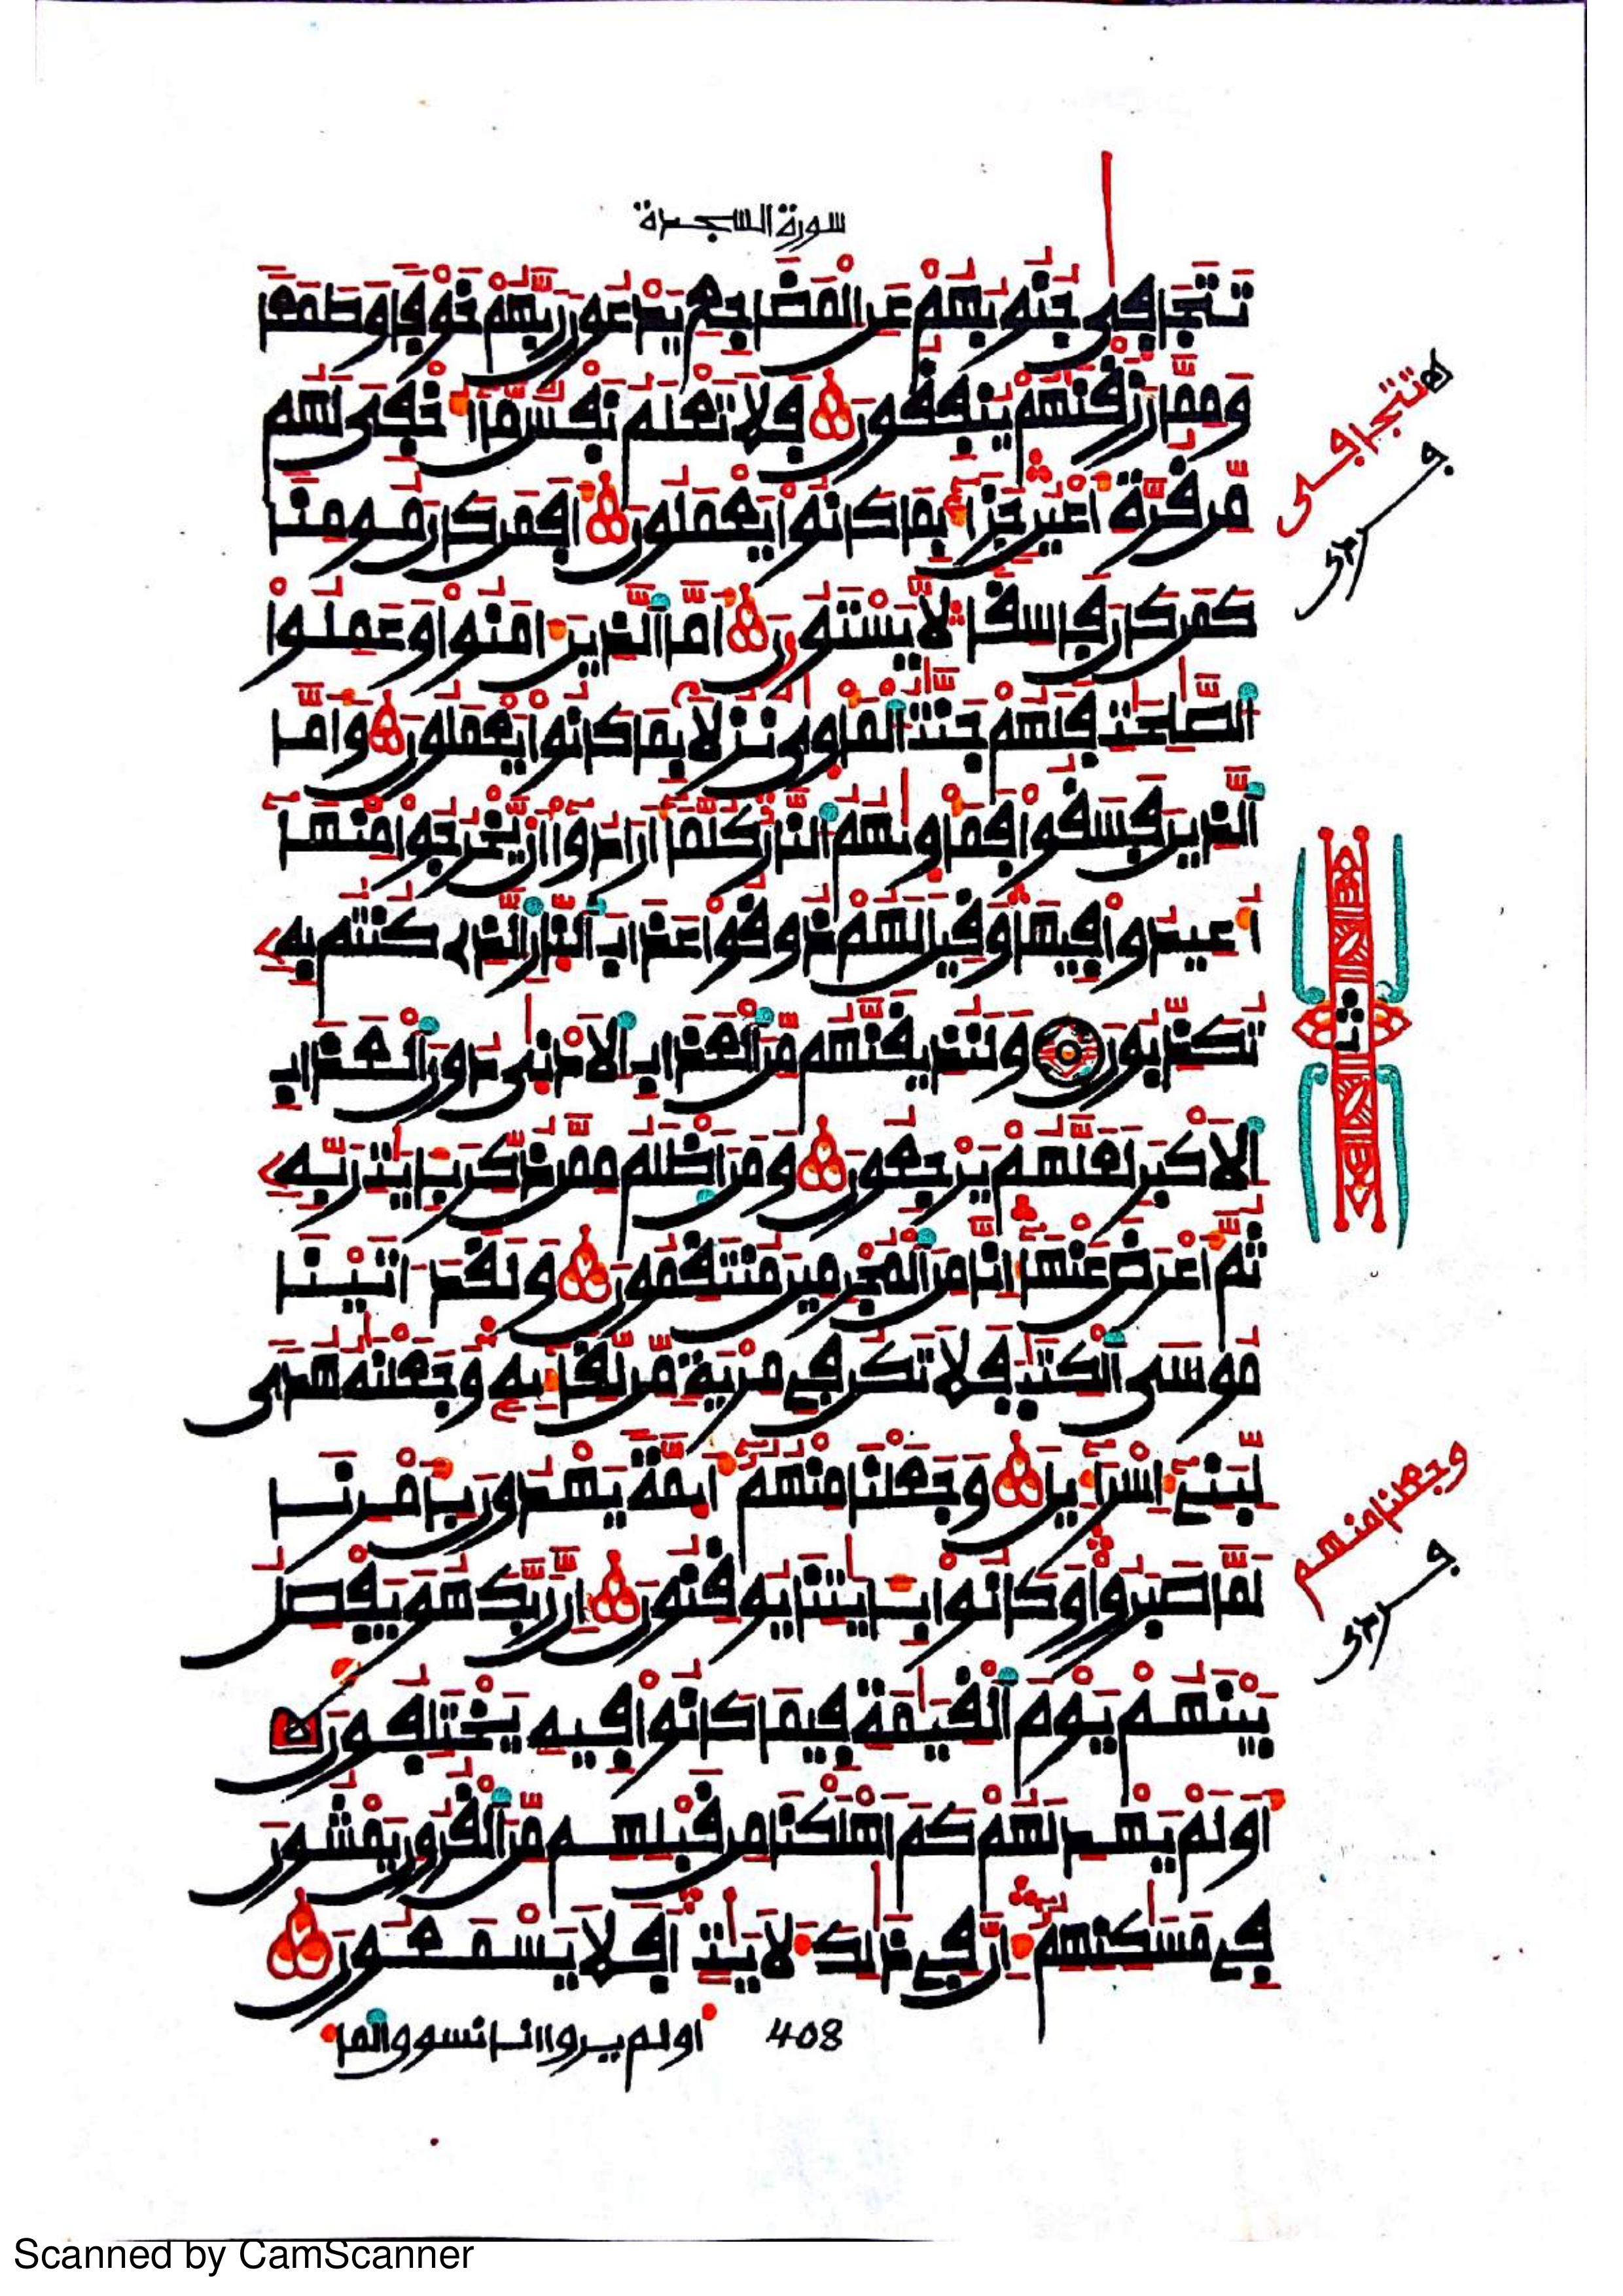 سورة السجدة
تَتَجَافَى جُنُوبُهُمْ عَنِ الْمَضَاجِعِ يَدْعُونَ رَبَّهُمْ خَوْفًا وَطَمَعًا
وَمِمَّا رَزَقْنَهُمْ يُنفِقُونَ فَلَا تَعْلَمُ نَفْسٌ مَّا أُخْفِيَ لَهُم
مِّن قُرَّةِ أَعْيُنٍ جَزَاءً بِمَا كَانُوا يَعْمَلُونَ أَفَمَن كَانَ مُومِنًا
كَمَن كَانَ فَاسِقًا لَّا يَسْتَوُونَ أَمَّا الَّذِينَ ءَامَنُوا وَعَمِلُوا
الصَّلِحَتِ فَلَهُمْ جَنَّتُ الْمَأْوَى نُزُلًا بِمَا كَانُوا يَعْمَلُونَ وَأَمَّا
الَّذِينَ فَسَقُوا فَمَأْوَيهُمُ النَّارُ كُلَّمَا أَرَادُوا أَن يَّخْرُجُوا مِنْهَا
أُعِيدُوا فِيهَا وَقِيلَ لَهُمْ ذُوقُوا عَذَابَ النَّارِ الَّذِي كُنتُم بِهِ
تُكَذِّبُونَ وَلَنُذِيقَنَّهُم مِّنَ الْعَذَابِ الْأَدْنَى دُونَ الْعَذَابِ
الْأَكْبَرِ لَعَلَّهُمْ يَرْجِعُونَ وَمَنْ أَظْلَمُ مِمَّن ذُكِّرَ بِـَايَتِ رَبِّهِ
ثُمَّ أَعْرَضَ عَنْهَا إِنَّا مِنَ الْمُجْرِمِينَ مُنتَقِمُونَ وَلَقَدْ ءَاتَيْنَا
مُوسَى الْكِتَبَ فَلَا تَكُن فِي مِرْيَةٍ مِّن لِّقَائِهِ وَجَعَلْنَهُ هُدًى
لِّبَنِي إِسْرَاءِيلَ وَجَعَلْنَا مِنْهُمُ أَيِمَّةً يَهْدُونَ بِأَمْرِنَا
لَمَّا صَبَرُوا وَكَانُوا بِـَايَتِنَا يُوقِنُونَ إِنَّ رَبَّكَ هُوَ يَفْصِلُ
بَيْنَهُمْ يَوْمَ الْقِيَمَةِ فِيمَا كَانُوا فِيهِ يَخْتَلِفُونَ
أَوَلَمْ يَهْدِ لَهُمْ كَمْ أَهْلَكْنَا مِن قَبْلِهِم مِّنَ الْقُرُونِ يَمْشُونَ
فِي مَسَكِنِهِمُ إِنَّ فِي ذَلِكَ لَأَيَتٍ أَفَلَا يَسْمَعُونَ
408
اولم يروا انا نسوو الما
تتجافى
ث
وجعلنا منهم
Scanned by CamScanner